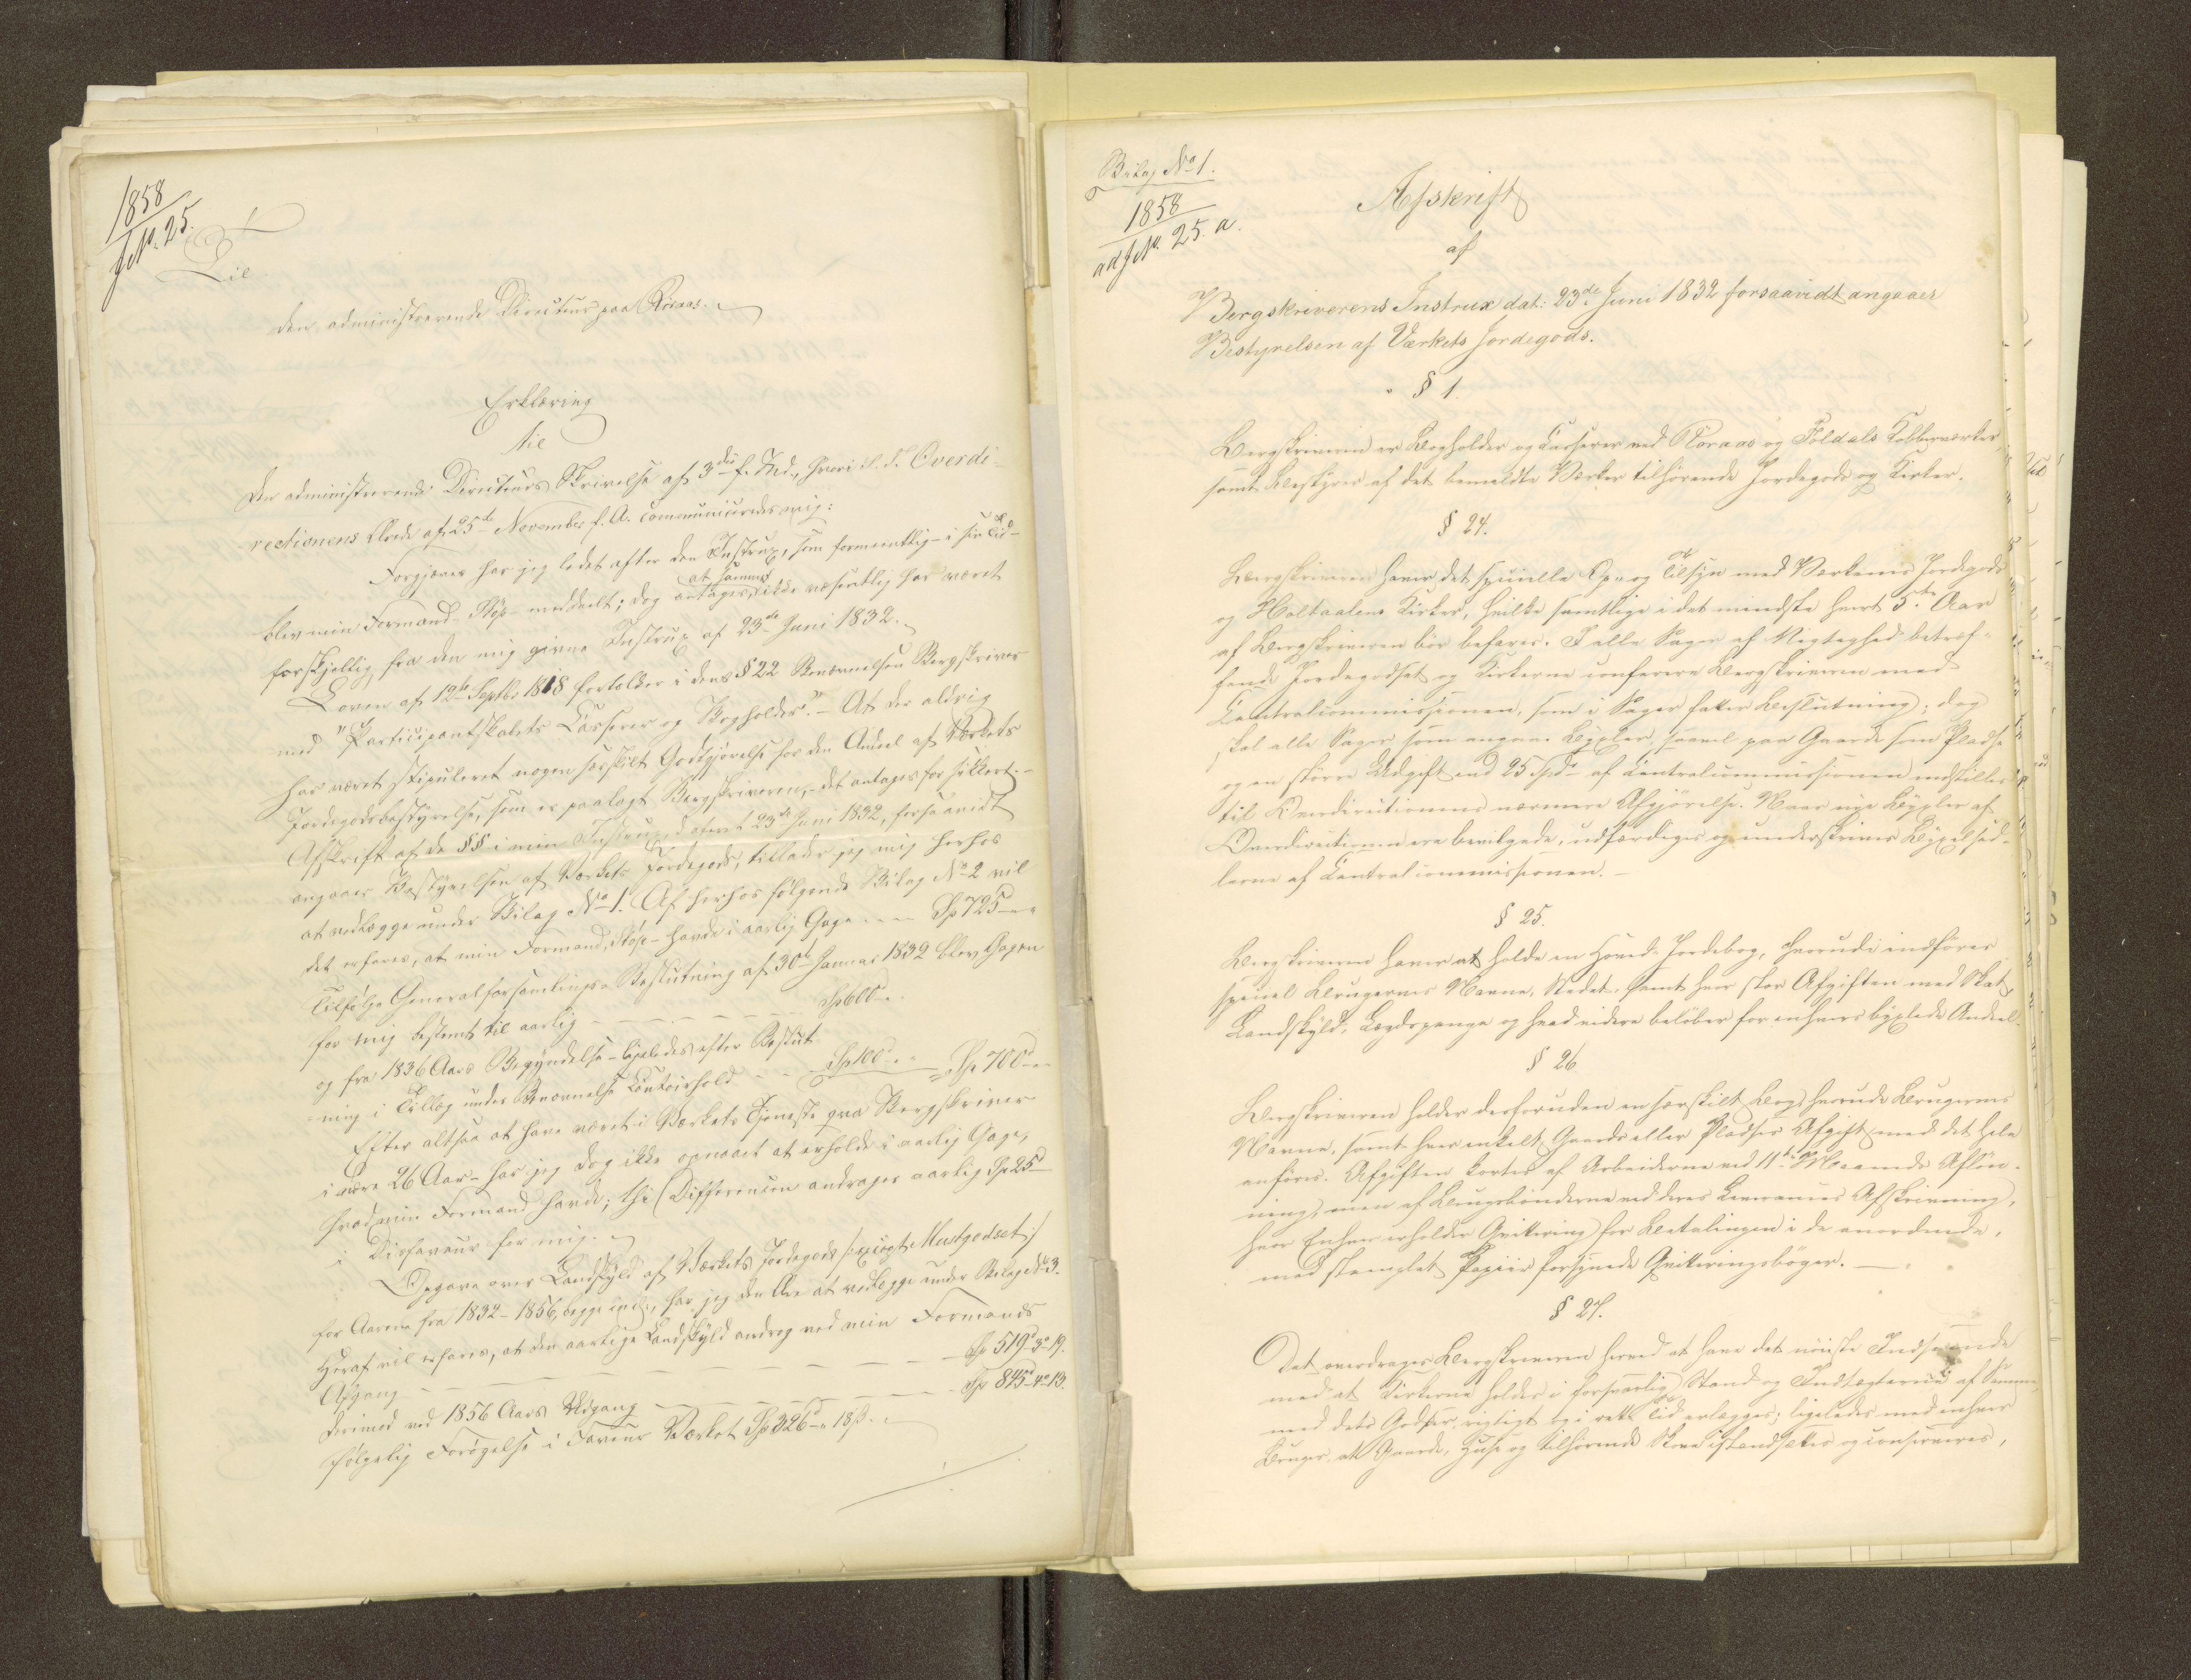 1858
J.No. 25.
Til
den administrerende Directeur paa Röraas.
Erklæring
til
den administrerende Directeurs Skrivelse af 3die f. Md., hvori S. T. Overdi-
rectionens Brev af 25de November f. A. communiceredes mig:
Forgjæves har jeg ledet efter den Instrux, som formeentlig i sin Tid
blev min Formand Stöp meddeelt; dog antages, at samme ikke væsentlig har været
forskjellig fra den mig givne Instrux af 23de Juni 1832.
Loven af 12te Septbr 1818 fortolker i dens § 22 Benævnelsen Bergskriver
med "Participantskabets Casserer og Bogholder". - At der aldrig
har været stipuleret nogen særskilt Godtgjørelse for den Andeel af Værkets
Jordegodsbestyrelse, som er paalagt Bergskriveren, - det antages for sikkert. -
Afskrift af de §§ i min Instrux, dateret 23de Juni 1832, forsaavidt
angaaer Bestyrelsen af Værkets Jordegods, tillader jeg mig herhos
at vedlægge under Bilag No 1. Af herhos følgende Bilag No 2 vil
det erfares, at min Formand, Stöp - havde i aarlig Gage - - - Sp 725 - "
Tilfølge Generalforsamlings-Beslutning af 30te Januar 1832 blev Gagen
for mig bestemt til aarlig - - - - - Sp 600 - "
og fra 1836 Aars Begyndelse - ligeledes efter Beslut-
ning i Tillæg under Benævnelse Contoirhold - - Sp 100 - " = Sp 700 - "
Efter altsaa at have været i Værkets Tjeneste qva Bergskriver
i over 26 Aar - har jeg dog ikke opnaaet at erholde i aarlig Gage,
hvad min Formand havde; thi Differencen andrager aarlig Sp 25
i Disfaveur for mig.
Opgave over Landskyld af Værkets Jordegods /: excepto Mustgodset :/
for Aarene fra 1832 - 1856, begge incl., har jeg den Ære at vedlægge under Bilag No 3.
Heraf vil erfares, at den aarlige Landskyld androg ved min Formands
Afgang - - - - - - - Sp 519 - 3 - 19.
derimod ved 1856 Aars Udgang - - - - Sp 845 - 4 - 13.
følgelig Forøgelse i Faveur Værket Sp 326 - " 18 ß.
Bilag No 1.
1858
ad J.No. 25. a.
Afskrift
af
Bergskriverens Instrux dat: 23de Juni 1832 forsaavidt angaaer
Bestyrelsen af Værkets Jordegods.
§ 1.
Bergskriveren er Bogholder og Casserer ved Röraas og Foldals Kobberværker,
samt Bestyrer af det bemeldte Værker tilhørende Jordegods og Kirker.
§ 24.
Bergskriveren haver det specielle Op- og Tilsyn med Værkernes Jordegods
og Holtaalens Kirker, hvilke samtlige i det mindste hvert 5te Aar
af Bergskriveren bør befares. I alle Sager af Vigtighed betref-
fende Jordegodset og Kirkerne conferere Bergskriveren med
Centralcommissionen, som i Sagen fatter Beslutning; dog
skal alle Sager som angaae Bygsler, saavel paa Gaarde som Pladse
og en større Udgift end 25 Spd. af Centralcommissionen indstilles
til Overdirectionens nærmere Afgjørelse. Naar nye Bygsler af
Overdirectionen ere bevilgede, udfærdiges og underskrives Bygselsed-
lerne af Centralcommissionen. -
§ 25.
Bergskriveren haver at holde en Hoved-Jordebog, hvorudi indføres
specielt Brugernes Navne, Stedet, samt hvor stor Afgiften med Skat,
Landskyld, Lægdspenge og hvad videre beløber for enhvers bygslede Andeel.
§ 26
Bergskriveren holder desforuden en særskilt Bog, hvorudi Brugernes
Navne, samt hver enkelt Gaards eller Pladses Afgift med det hele
anføres. Afgiften kortes af Arbeiderne ved 11te Maaneds Afløn-
ning, men af Brugsbønderne ved deres Leverances Afskrivning,
hvor Enhver erholder Qvittering for Betalingen i de anordnede,
med stemplet Papiir forsynede Qvitteringsbøger. -
§ 27.
Det overdrages Bergskriveren herved at have det nøieste Indseende
med at Kirkerne holdes i forsvarlig Stand og Indtægterne af Samme
med dets Godser rigtigt og i rette Tid erlægges; ligeledes med enhver
Bruger, at Gaarde, Huse og tilhørende Skove istandsættes og conserveres,